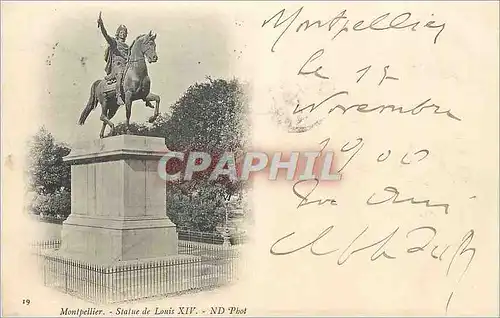 Montpellier
le 17
Novembre
1900
CPAPHIL
19
Montpellier. - Statue de Louis XIV. - ND Phot